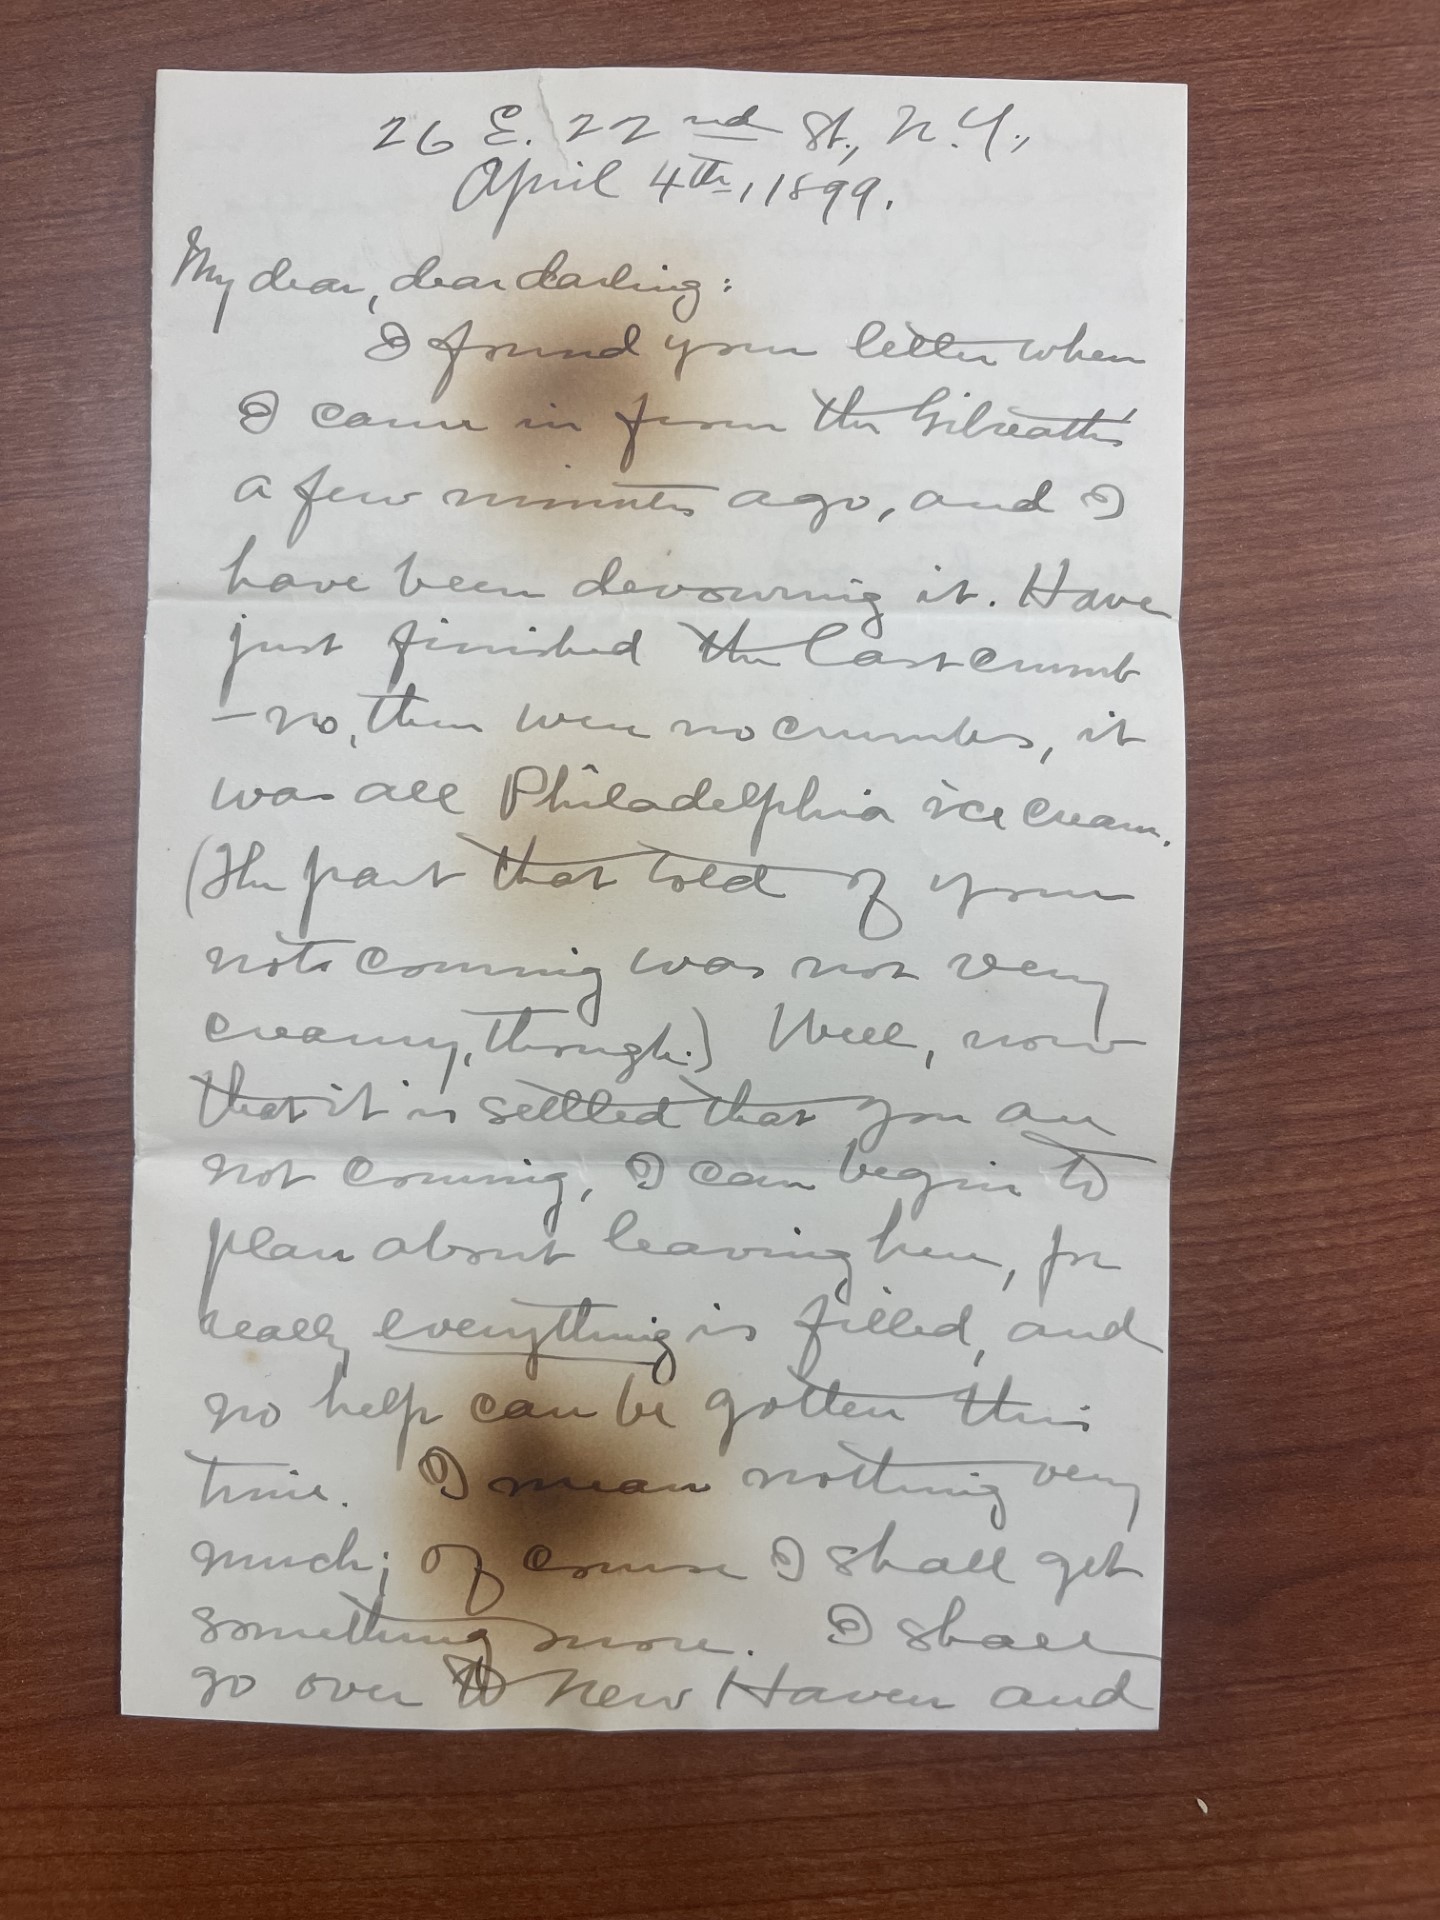 26 E. 22nd St., N.Y.,
April 4th, 1899.
My dear, dear darling:
I found your letter when
I came in from the Gilreath's
a few minutes ago, and I
have been devouring it. Have
just finished the last crumb
– no, there were no crumbs, it
was all Philadelphia ice cream.
(The part that told of your
not coming was not very
creamy, though.) Well, now
that it is settled that you are
not coming, I can begin to
plan about leaving here, for
really everything is filled, and
no help can be gotten this
time. I mean nothing very
much; of course I shall get
something more. I shall
go over to New Haven and